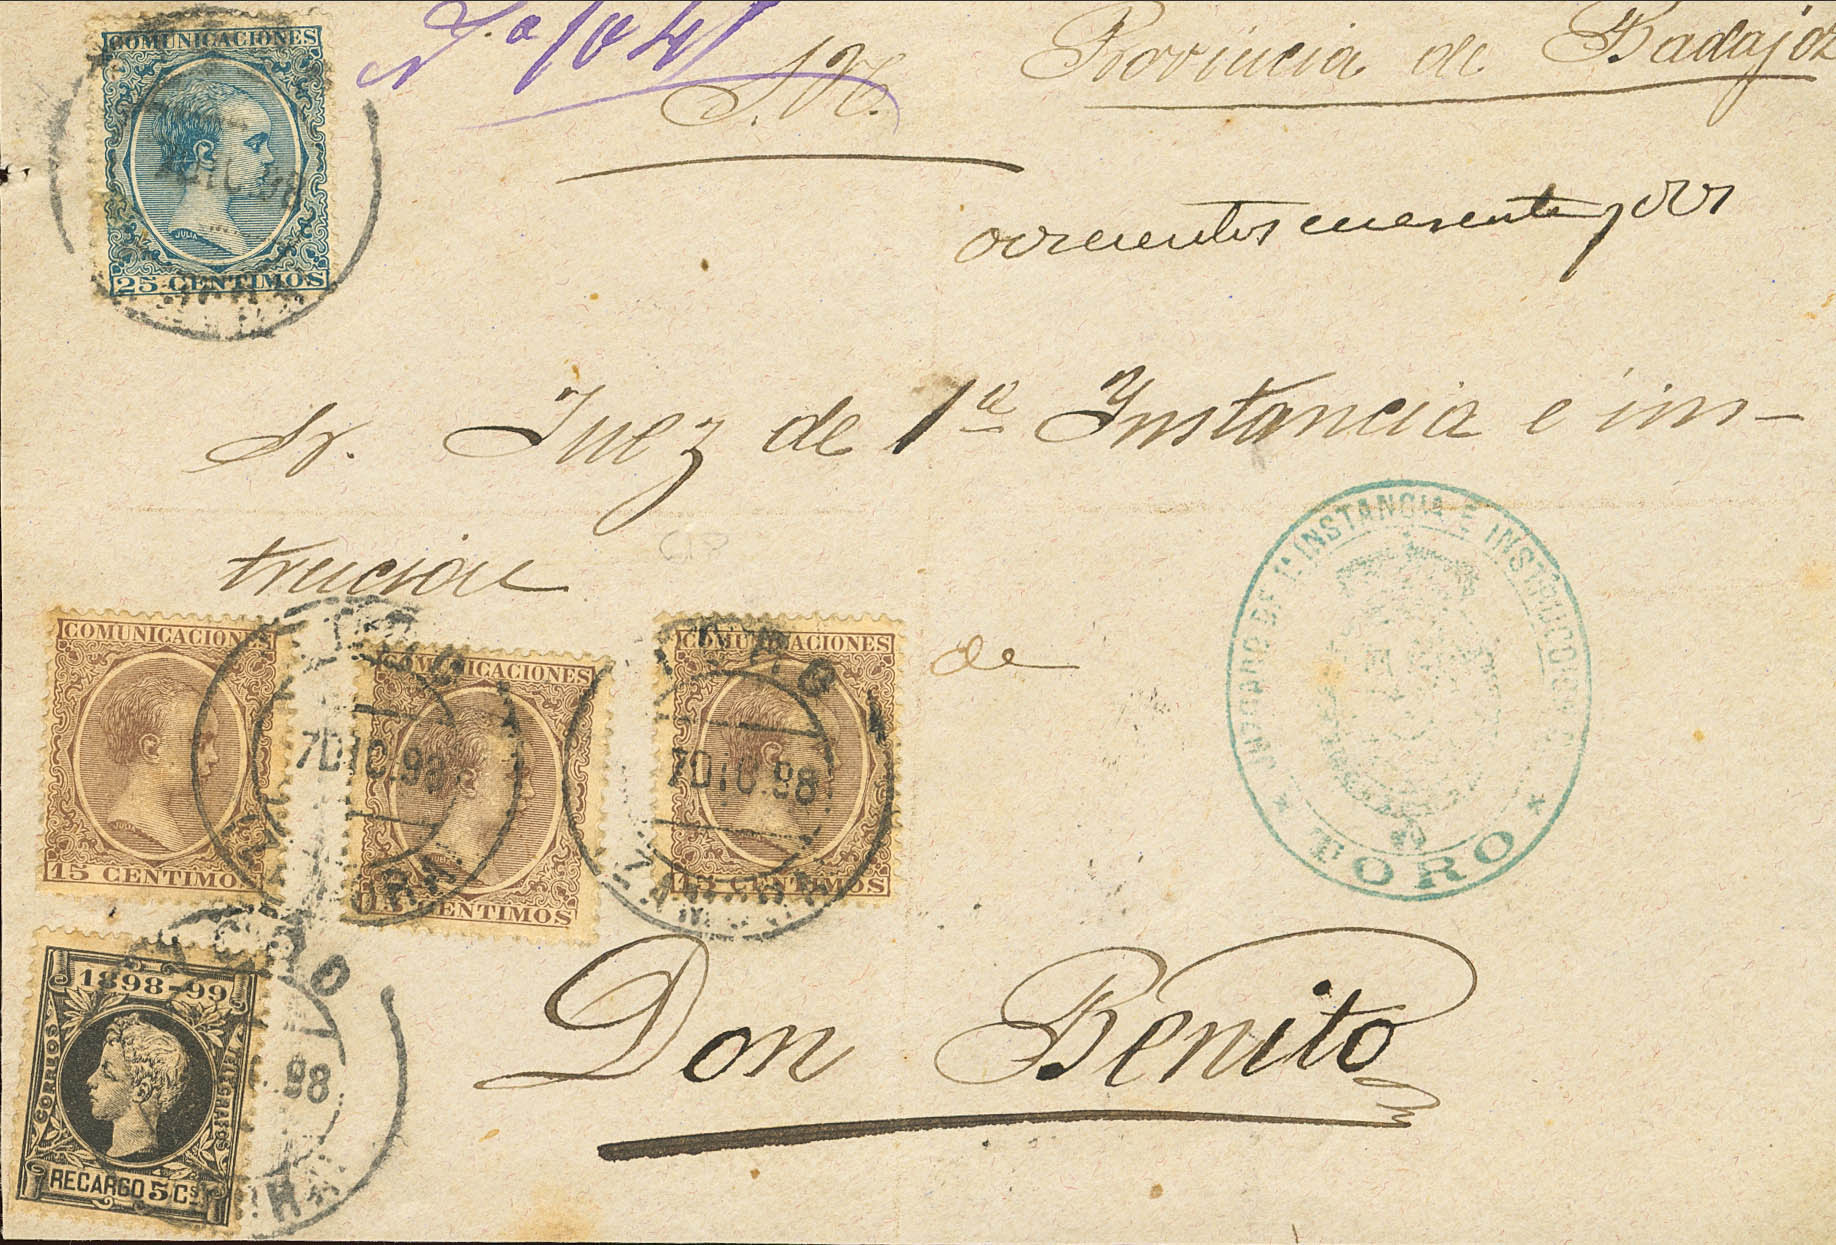 COMUNICACIONES
JULIA
25 CENTIMOS
S. N.
Provincia de Badajoz
Sr. Juez de 1ª Instancia e ins-
truccion
de
JUZGADO DE 1ª INSTANCIA E INSTRUCCION
TORO
COMUNICACIONES
JULIA
15 CENTIMOS
COMUNICACIONES
15 CENTIMOS
COMUNICACIONES
15 CENTIMOS
TORO
7 DIC. 98
ZAMORA
TORO
7 DIC. 98
ZAMORA
1898-99
CORREOS
Y TELEGRAFOS
RECARGO 5 Cs
TORO
98
Don Benito